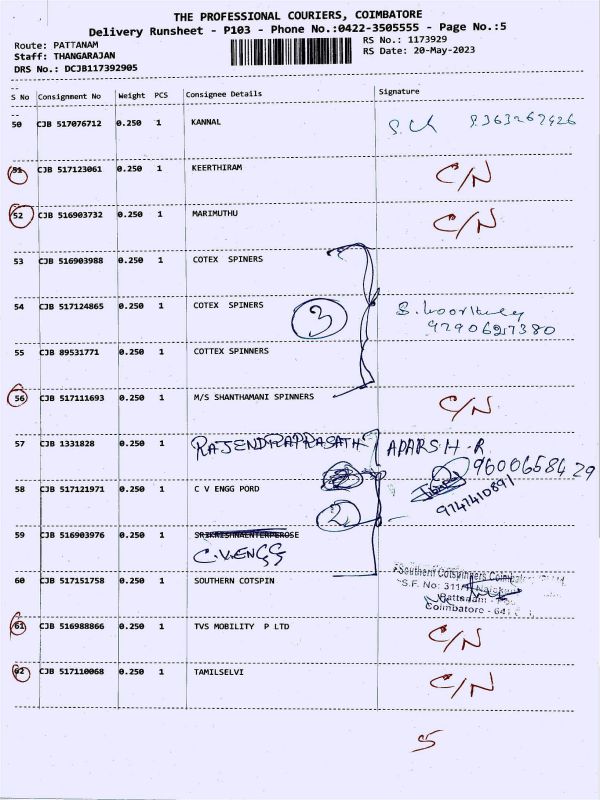 THE PROFESSIONAL COURIERS, COIMBATORE
Delivery Runsheet - P103 - Phone No.:0422-3505555 - Page No.:5
Route: PATTANAM RS No.: 1173929
Staff: THANGARAJAN RS Date: 20-May-2023
DRS No.: DCJB117392905
S No Consignment No Weight PCS Consignee Details Signature
50 CJB 517076712 0.250 1 KANNAL 9363267426
51 CJB 517123061 0.250 1 KEERTHIRAM C/N
52 CJB 516903732 0.250 1 MARIMUTHU C/N
53 CJB 516903988 0.250 1 COTEX SPINERS
54 CJB 517124865 0.250 1 COTEX SPINERS 3 9790627380
55 CJB 89531771 0.250 1 COTTEX SPINNERS
56 CJB 517111693 0.250 1 M/S SHANTHAMANI SPINNERS C/N
57 CJB 1331828 0.250 1 RAJENDRAPRASATH ADARSH.R
9600658429
58 CJB 517121971 0.250 1 C V ENGG PORD 9741410891
2
59 CJB 516903976 0.250 1 SRIKRISHNAENTERPEROSE
C.V.ENGG
60 CJB 517151758 0.250 1 SOUTHERN COTSPIN
Southern Cotspinners Coimbatore
S.F. No: 311/1
Pattanam
Coimbatore - 641
61 CJB 516988866 0.250 1 TVS MOBILITY P LTD C/N
62 CJB 517110068 0.250 1 TAMILSELVI C/N
5